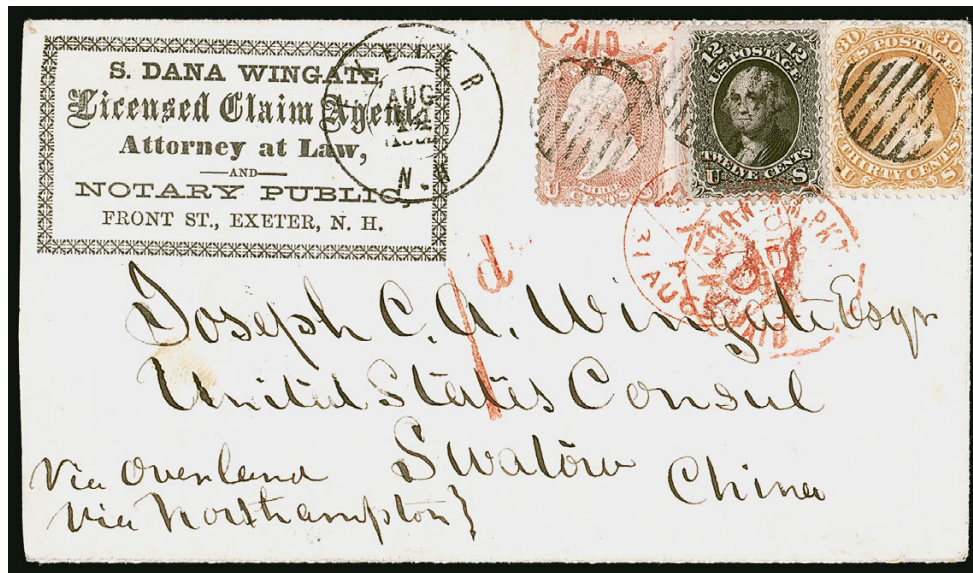 S. DANA WINGATE,
Licensed Claim Agent,
Attorney at Law,
AND
NOTARY PUBLIC,
FRONT ST., EXETER, N. H.
AUG
N.H
PAID
12 12
U.S. POSTAGE
TWELVE CENTS
U S
30 30
U.S. POSTAGE
THIRTY CENTS
U S
U S
YORK AM. PKT
AUG
PAID
1d
Joseph C. A. Wingate Esqr
United States Consul
Swatow
China
Via Overland
Via Northampton}